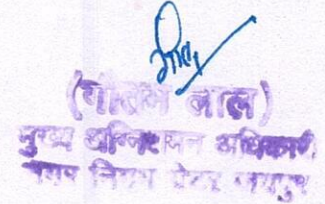 (गौतम लाल)
मुख्य अग्निशमन अधिकारी
नगर निगम ग्रेटर जयपुर